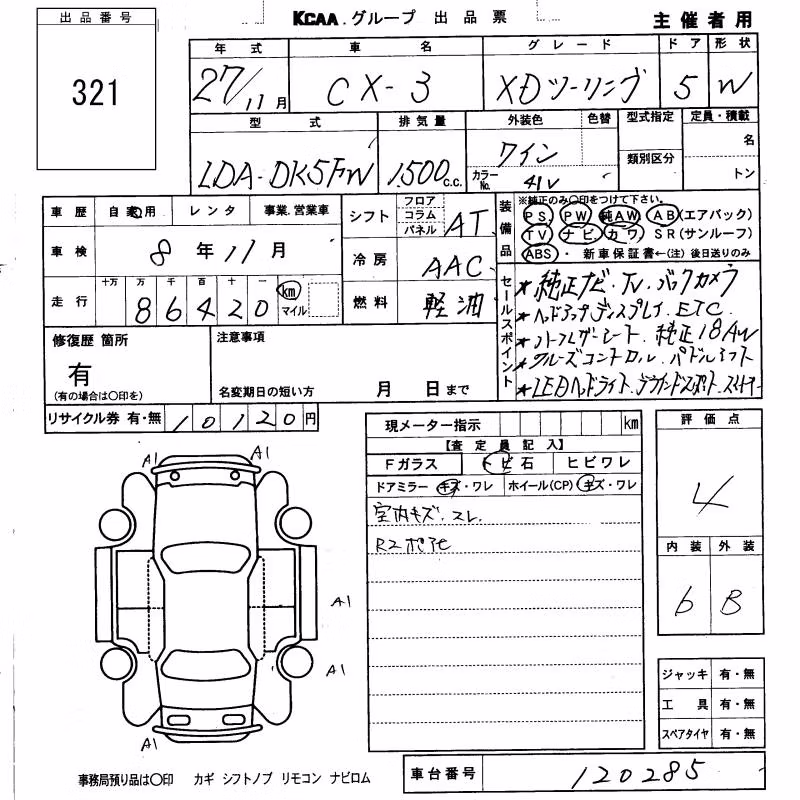 出品番号
321
KCAA.グループ 出品票
主催者用
年式 車名 グレード ドア 形状
27/11月 CX-3 XDツーリング 5 W
型式 排気量 外装色 色替 型式指定 定員・積載
LDA-DK5FW 1,500c.c. ワイン 名
カラーNo. 41V 類別区分 トン
車歴 自家用 レンタ 事業.営業車
車検 8年11月
走行 十万 万 千 百 十 一
86420 km マイル
シフト フロア コラム パネル AT
冷房 AAC
燃料 軽油
装備品 ※純正のみ○印をつけて下さい。
PS PW 純AW AB(エアバック)
TV ナビ カワ SR(サンルーフ)
ABS ・ 新車保証書←(注) 後日送りのみ
セールスポイント
★純正ナビ.TV.バックカメラ
★ヘッドアップディスプレイ.ETC.
★ハーフレザーシート.純正18AW
★クルーズコントロール.パドルシフト
★LEDヘッドライト.
修復歴 箇所
有
(有の場合は○印を)
注意事項
名変期日の短い方 月 日まで
リサイクル券 有・無 10120円
現メーター指示 km
【査定員記入】
Fガラス トビ石 ヒビワレ
ドアミラー キズ・ワレ ホイール(CP) キズ・ワレ
室内キズ.スレ.
評価点
4
内装 外装
6 B
A1 A1
A1
A1
A1
ジャッキ 有・無
工具 有・無
スペアタイヤ 有・無
事務局預り品は○印 カギ シフトノブ リモコン ナビロム
車台番号 120285